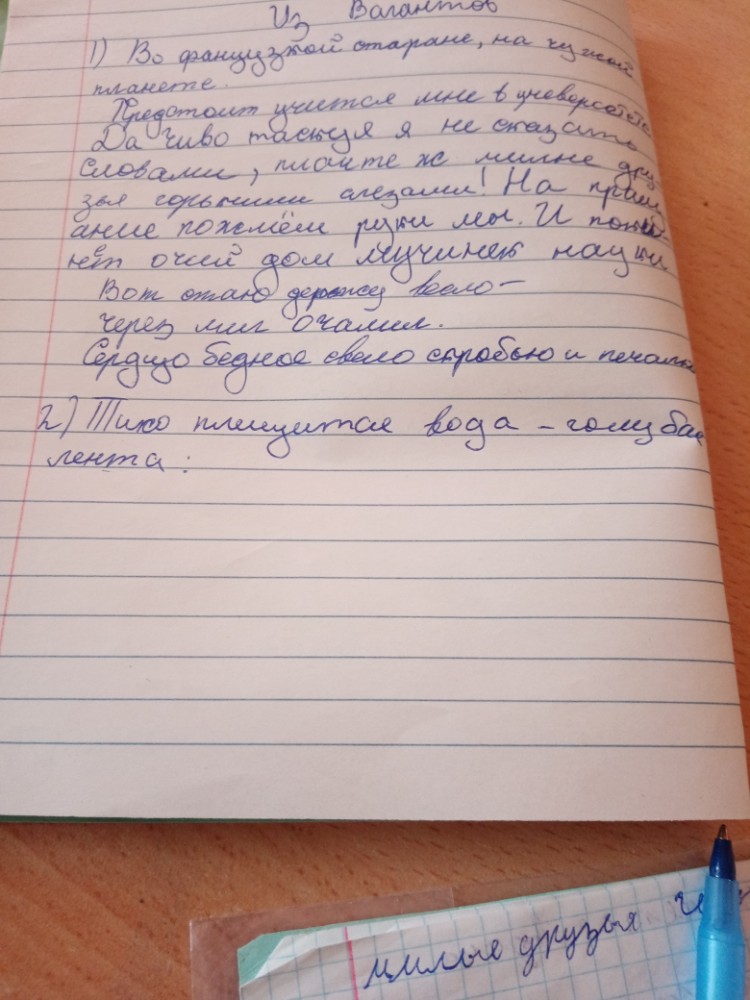 Из Вагантов
1) Во французкой старане, на чужой
планете.
Предстоит учится мне в университете
Да чиво таскуя я не сказать
Словами, плачте ж милые дру-
зья горькими слезами! На прощ-
ание пожмём руки мы. И покин-
нет очий дом мученек науки
Вот стаю держу весло -
через миг очалил.
Сердцо бедное свело скробью и печалью
2) Тихо плещится вода - голубая
лента:
милые друзья